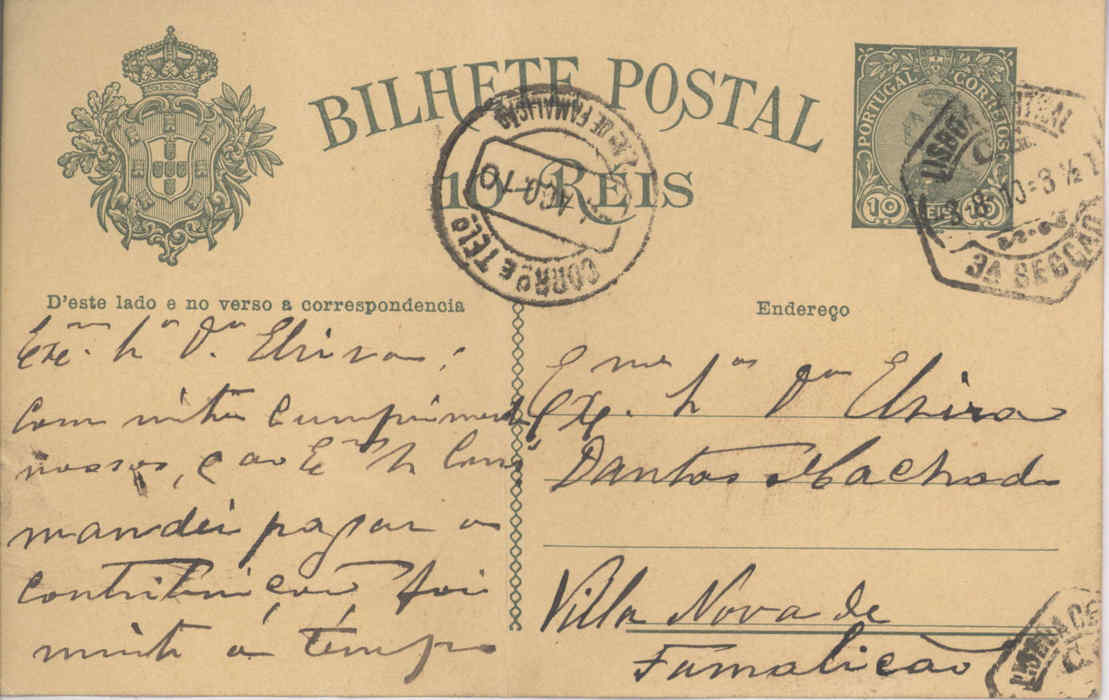 BILHETE POSTAL
10 REIS
PORTUGAL CORREIOS
10 REIS 10
LISBOA CENTRAL
3-8-10=3½T
3A SECÇÃO
DE FAMALICÃO
AGO-10
CORRO E TELO
D'este lado e no verso a correspondencia
Endereço
Exma. Sra. Da. Elvira
com muitos cumprimentos
nossos, e ao Exmo. Sr.
mandei pagar a
contribuição foi
muito a tempo
Exma. Sra. Da Elvira
Dantas Machado
Villa Nova de
Famalicão
LISBOA CE